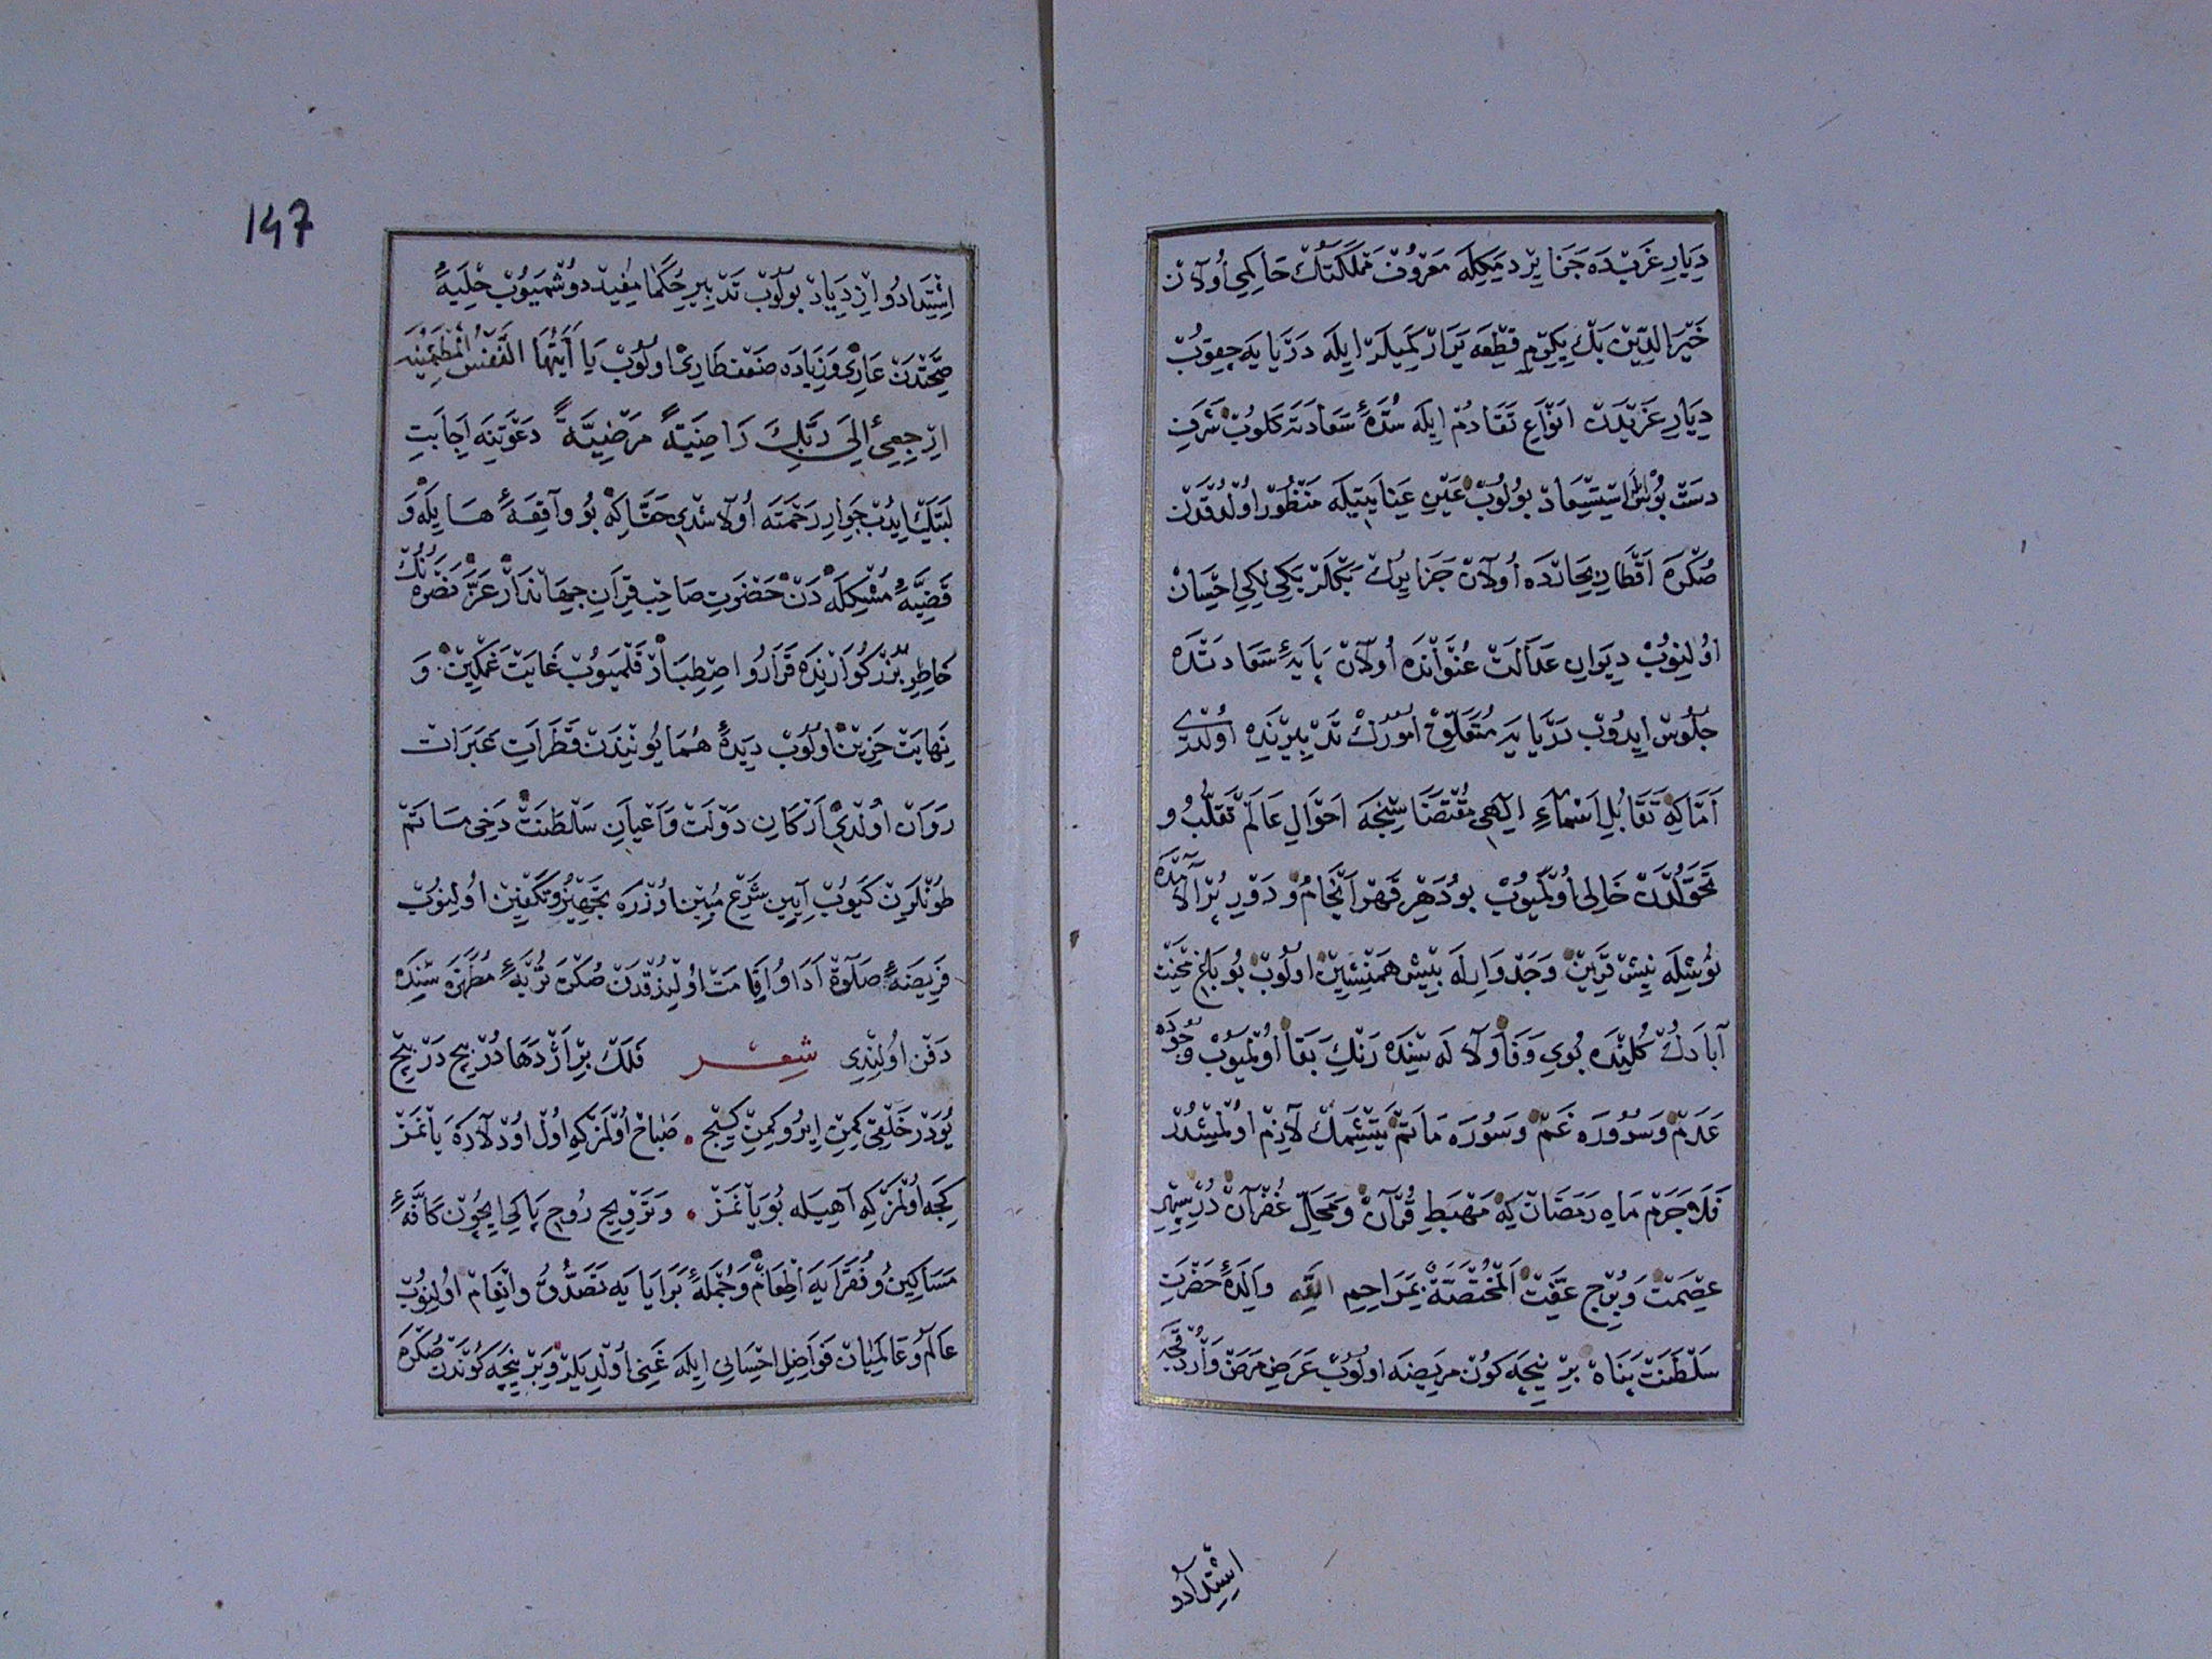 دِيَارِ غَرْبْدَه جَزَايِرْ دِمَكِلَه مَعْرُوفْ مَمْلَكَتُكْ حَاكِمِي اُولَانْ
خَيْرُ الدِّينْ بَكْ يِكِرْمِ قِطْعَه كَمِيلَرْ اِيلَه دَرْيَايَه چِقُوبْ
دِيَارِ غَرْبْدَنْ اَنْوَاعِ تَقَادُمْ اِيلَه سُدَّهٔ سَعَادَتَه كَلُوبْ شَرَفِ
دَسْتْ بُوسْلَه اِسْتِسْعَادْ بُولُوبْ عَيْنِ عِنَايَتِيلَه مَنْظُورْ اُولْدُقْدَنْ
صُكْرَه اَقْطَارِ اُولَانْ جَزَايِرُكْ بَكْلَرْبَكِيلِكِي اِحْسَانْ
اُولِنُوبْ دِيوَانِ عَدَالَتْ عُنْوَانْدَه اُولَانْ پَايَهٔ سَعَادَتْدَه
جُلُوسْ اِيدُوبْ دَرْيَايَه مُتَعَلِّقْ اُمُورُكْ تَدْبِيرِنْدَه اُولْدِي
اَمَّا كِه تَقَابُلِ اَسْمَاءِ اِلٰهِي مُقْتَضَاسِنْجَه اَحْوَالِ عَالَمْ تَقَلُّبُ و
تَحَوُّلْدَنْ خَالِي اُولْمَيُوبْ بُو دَهْرِ قَهْرْ اَنْجَامْ وَدَوْرِ پُرْ آلَامْدَه
نُوشِلَه نِيشْ قَرِينْ وَجَدْوَارِلَه بِيشْ هَمْنِشِينْ اُولُوبْ بُو بَاغِ مِحْنَتْ
آبَادُكْ كُلِنْدَه بُويِ وَفَا وَلَالَه سِنْدَه رَنْكِ بَقَا اُولْمَيُوبْ وُجُودَه
عَدَمْ وَسُرُورَه غَمْ وَسُورَه مَاتَمْ يَتِشْمَكْ لَازِمْ اُولْمِشْدُرْ
فَلَا جَرَمْ مَاهِ رَمَضَانْ كِه مَهْبَطِ قُرْآنْ وَمَحَلِّ غُفْرَانْدُرْ سِپِهْرِ
عِصْمَتْ وَبُرْجِ عِفَّتْ اَلْمُخْتَصَّةُ بِمَرَاحِمِ اللّٰه وَالِدَهٔ حَضْرَتِ
سَلْطَنَتْ پَنَاه بِرْ نِيچَه كُونْ مَرِيضَه اُولُوبْ عَرَضِ مَرَضْ وَارْدُقْجَه
اِشْتِدَادُ و
اِشْتِدَادُ و اِزْدِيَادْ بُولُوبْ تَدْبِيرِ حُكَمَا مُفِيدْ دُوشْمَيُوبْ حِلْيَهٔ
صِحَّتْدَنْ عَارِي وَزِيَادَه ضَعْفْ طَارِي اُولُوبْ يَا اَيَّتُهَا النَّفْسُ الْمُطْمَئِنَّه
اِرْجِعِي اِلَى رَبِّكِ رَاضِيَةً مَرْضِيَّةً دَعْوَتِنَه اِجَابَتِ
لَبَّيْكْ اِيدُبْ جِوَارِ رَحْمَتَه اُولَاشْدِي حَقَّا كِه بُو وَاقِعَهٔ هَايِلَه وَ
قَضِيَّهٔ مُشْكِلَه دَنْ حَضْرَتِ صَاحِبْ قِرَانِ جِهَانْدَارْ عَزَّ نَصْرُهْ نُكْ
خَاطِرِ بُزُرْكُوَارْنِدَه قَرَارُ و اِصْطِبَارْ قَلْمَيُوبْ غَايَتْ غَمْكِينْ وَ
نِهَايَتْ حَزِينْ اُولُوبْ دِيدَهٔ هُمَايُونِنْدَنْ قَطَرَاتِ عَبَرَاتْ
رَوَانْ اُولْدِي اَرْكَانِ دَوْلَتْ وَاَعْيَانِ سَلْطَنَتْ دَخِي مَاتَمْ
طُونْلَرِينْ كَيُوبْ آيِينِ شَرْعِ مُبِينْ اُوزْرَه تَجْهِيزْ وَتَكْفِينْ اُولِنُوبْ
فَرِيضَهٔ صَلَوةْ اَدَا وُ اِقَامَتْ اُولِنْدُقْدَنْ صُكْرَه تُرْبَهٔ مُطَهَّرَه سِنْدَه
دَفْن اُولِنْدِي شِعْر فَلَكْ بِرْ اَژْدَهَادُرْ پِيچْ دَرْ پِيچْ
يُودَرْ خَلْقِي كِمِنْ اِيرُ و كِمِنْ كِيچْ • صَبَاحْ اُولْمَزْ كِه اُولْ اُودْلَارَه يَانْمَزْ
كِجَه اُولْمَزْ كِه آهِيلَه بُويَانْمَزْ • وَتَرْوِيحِ رُوحِ پَاكِي اِيچُونْ كَافَّهٔ
مَسَاكِينُ و فُقَرَايَه اِطْعَامْ وَجُمْلَهٔ بَرَايَايَه تَصَدُّقُ و اِنْعَامْ اُولِنُوبْ
عَالَمُ و عَالَمِيَانْ فَوَاضِلِ اِحْسَانِي اِيلَه غَنِي اُولْدِيلَرْ وَبِرْ نِيچَه كُونْدَنْ صُكْرَه
147